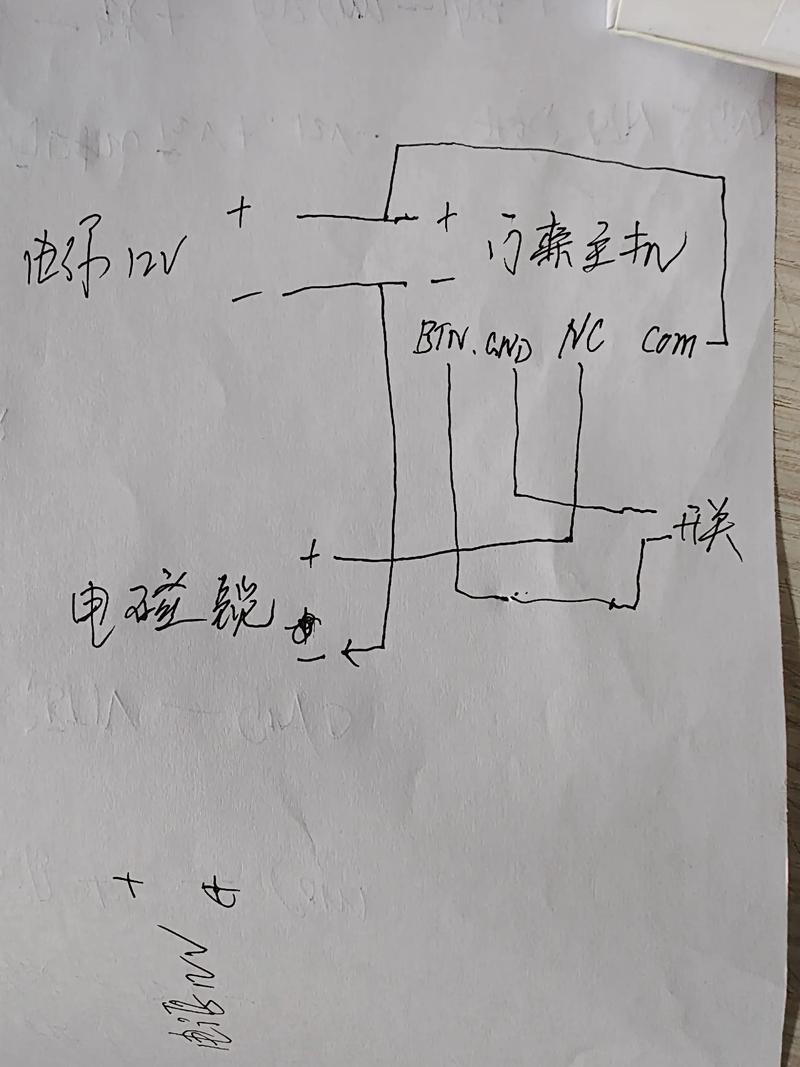 + +
电源 12V 门禁主机
- -
BTN. GND NC Com
+ 开关
电磁锁
-
+ +
电源12V